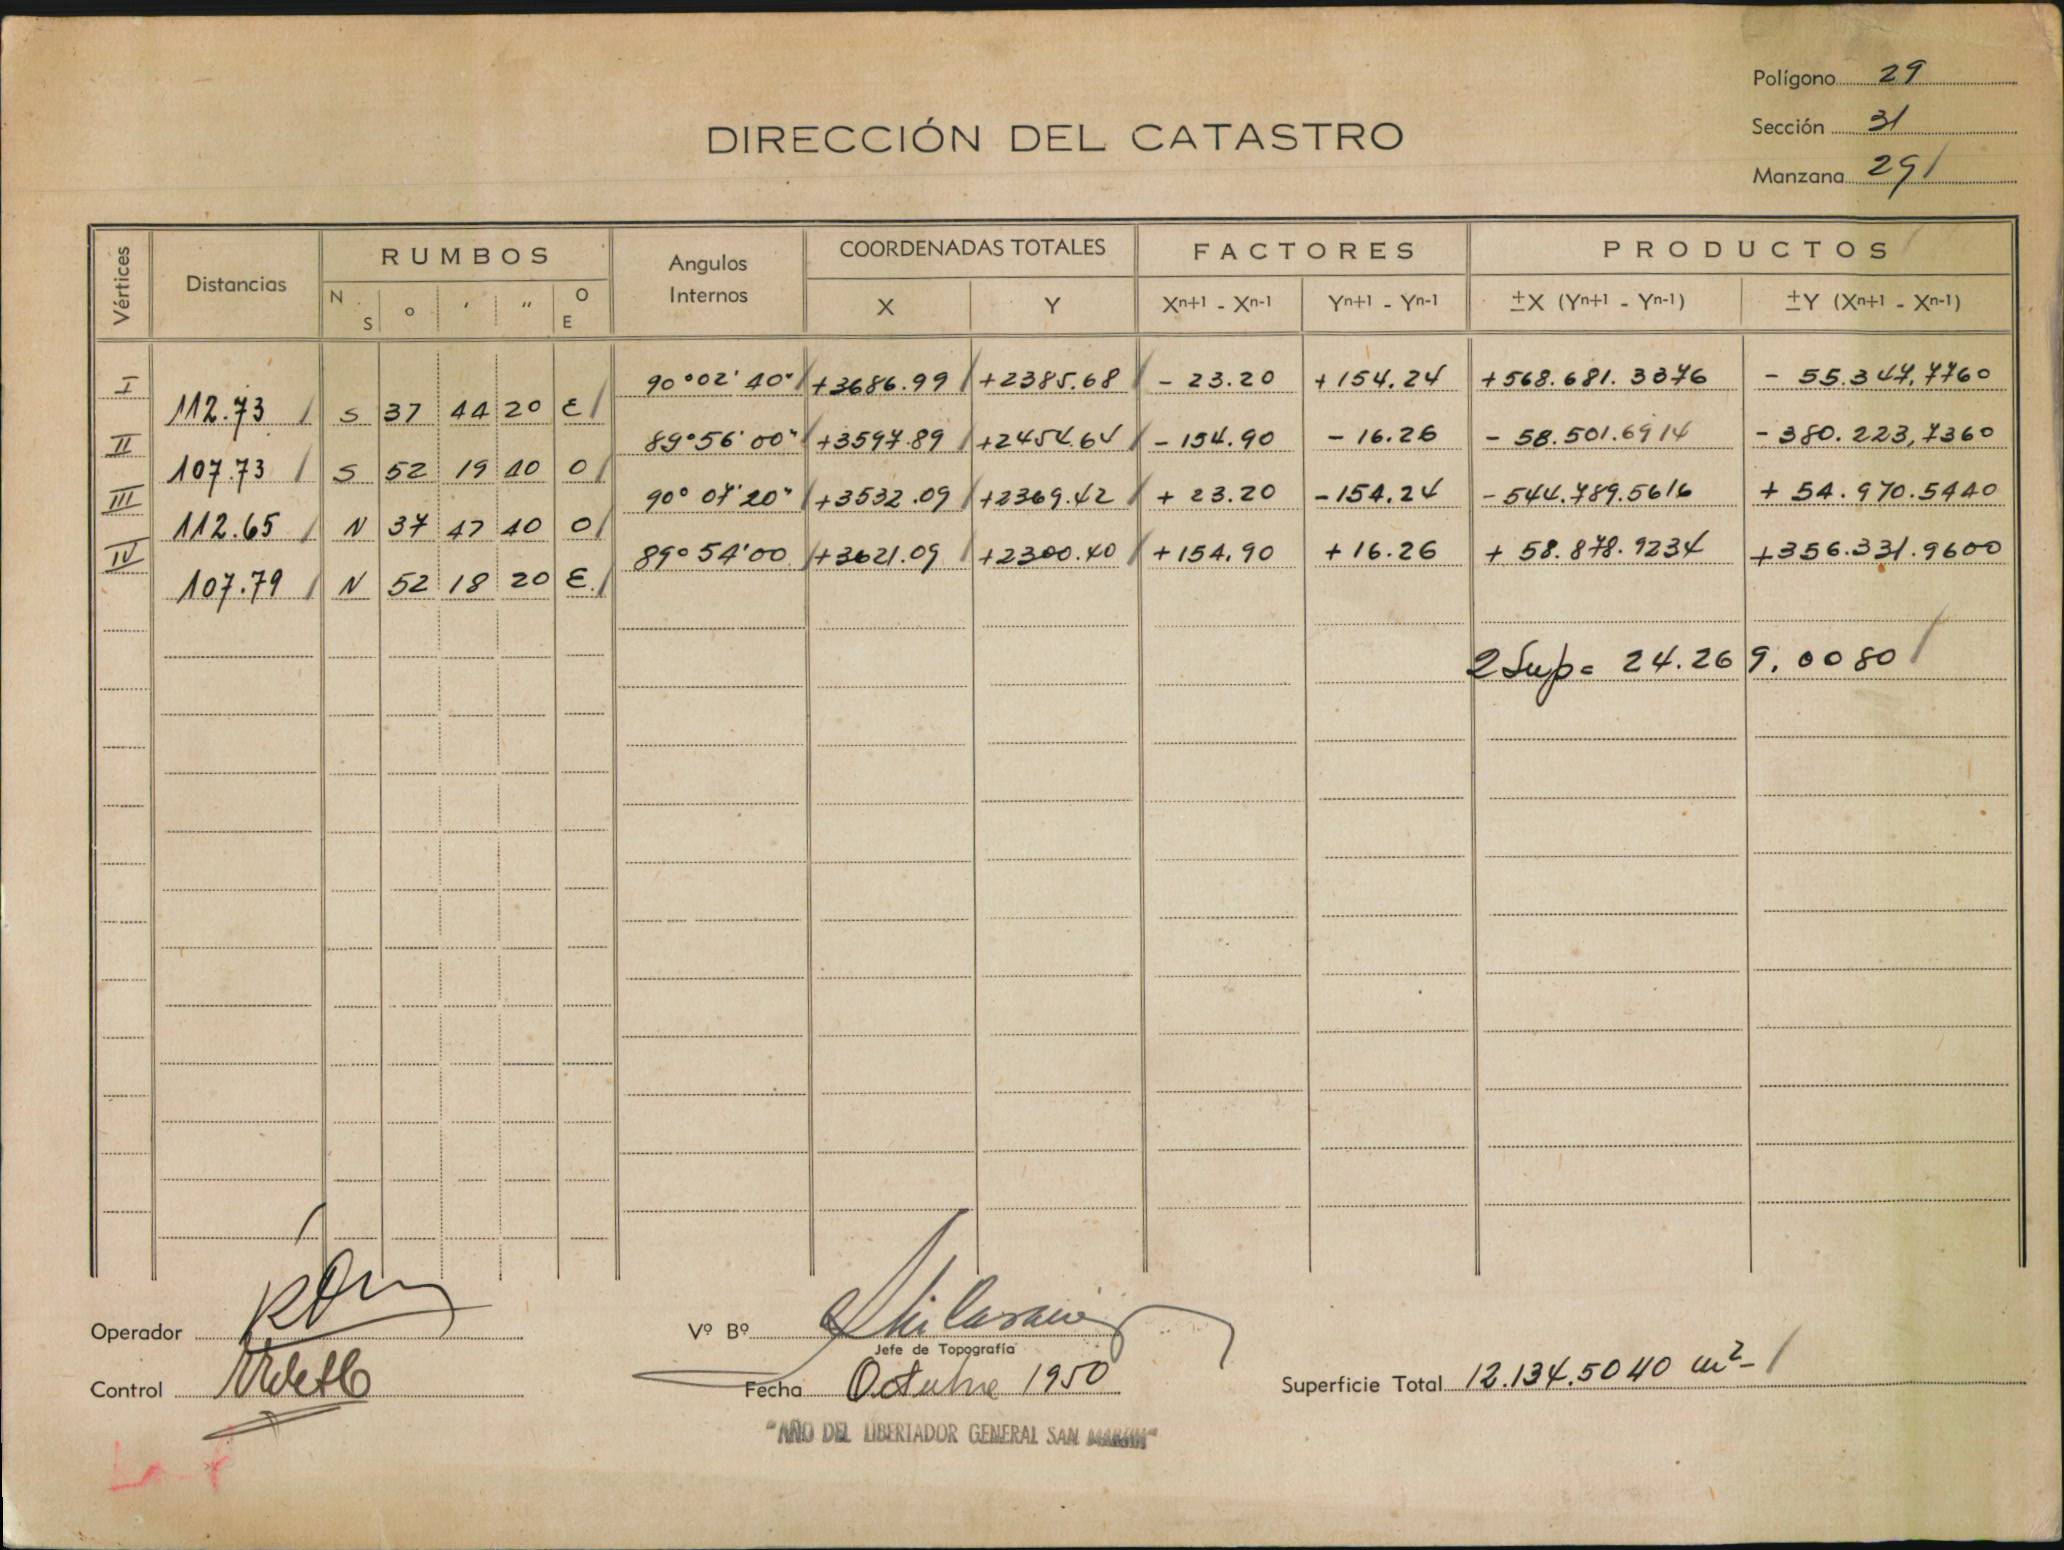 Polígono 29
DIRECCIÓN DEL CATASTRO
Sección 31
Manzana 29
Vértices Distancias RUMBOS N S o ' " O E Angulos Internos COORDENADAS TOTALES X Y FACTORES Xn+1 - Xn-1 Yn+1 - Yn-1 PRODUCTOS ±X (Yn+1 - Yn-1) ±Y (Xn+1 - Xn-1)
I 90°02'40" +3686.99 +2385.68 - 23.20 +154.24 +568.681.3376 - 55.347,7760
112.73 S 37 44 20 E
II 89°56'00" +3597.89 +2454.64 -154.90 - 16.26 - 58.501.6914 -380.223,7360
107.73 S 52 19 40 O
III 90°07'20" +3532.09 +2369.42 + 23.20 -154.24 -544.789.5616 + 54.970.5440
112.65 N 37 47 40 O
IV 89°54'00 +3621.09 +2300.40 +154.90 + 16.26 + 58.878.9234 +356.331.9600
107.79 N 52 18 20 E.
2 Sup = 24.269.0080
Operador
Vº Bº
Jefe de Topografía
Control
Fecha Octubre 1950
Superficie Total 12.134.5040 m²-
"AÑO DEL LIBERTADOR GENERAL SAN MARTIN"